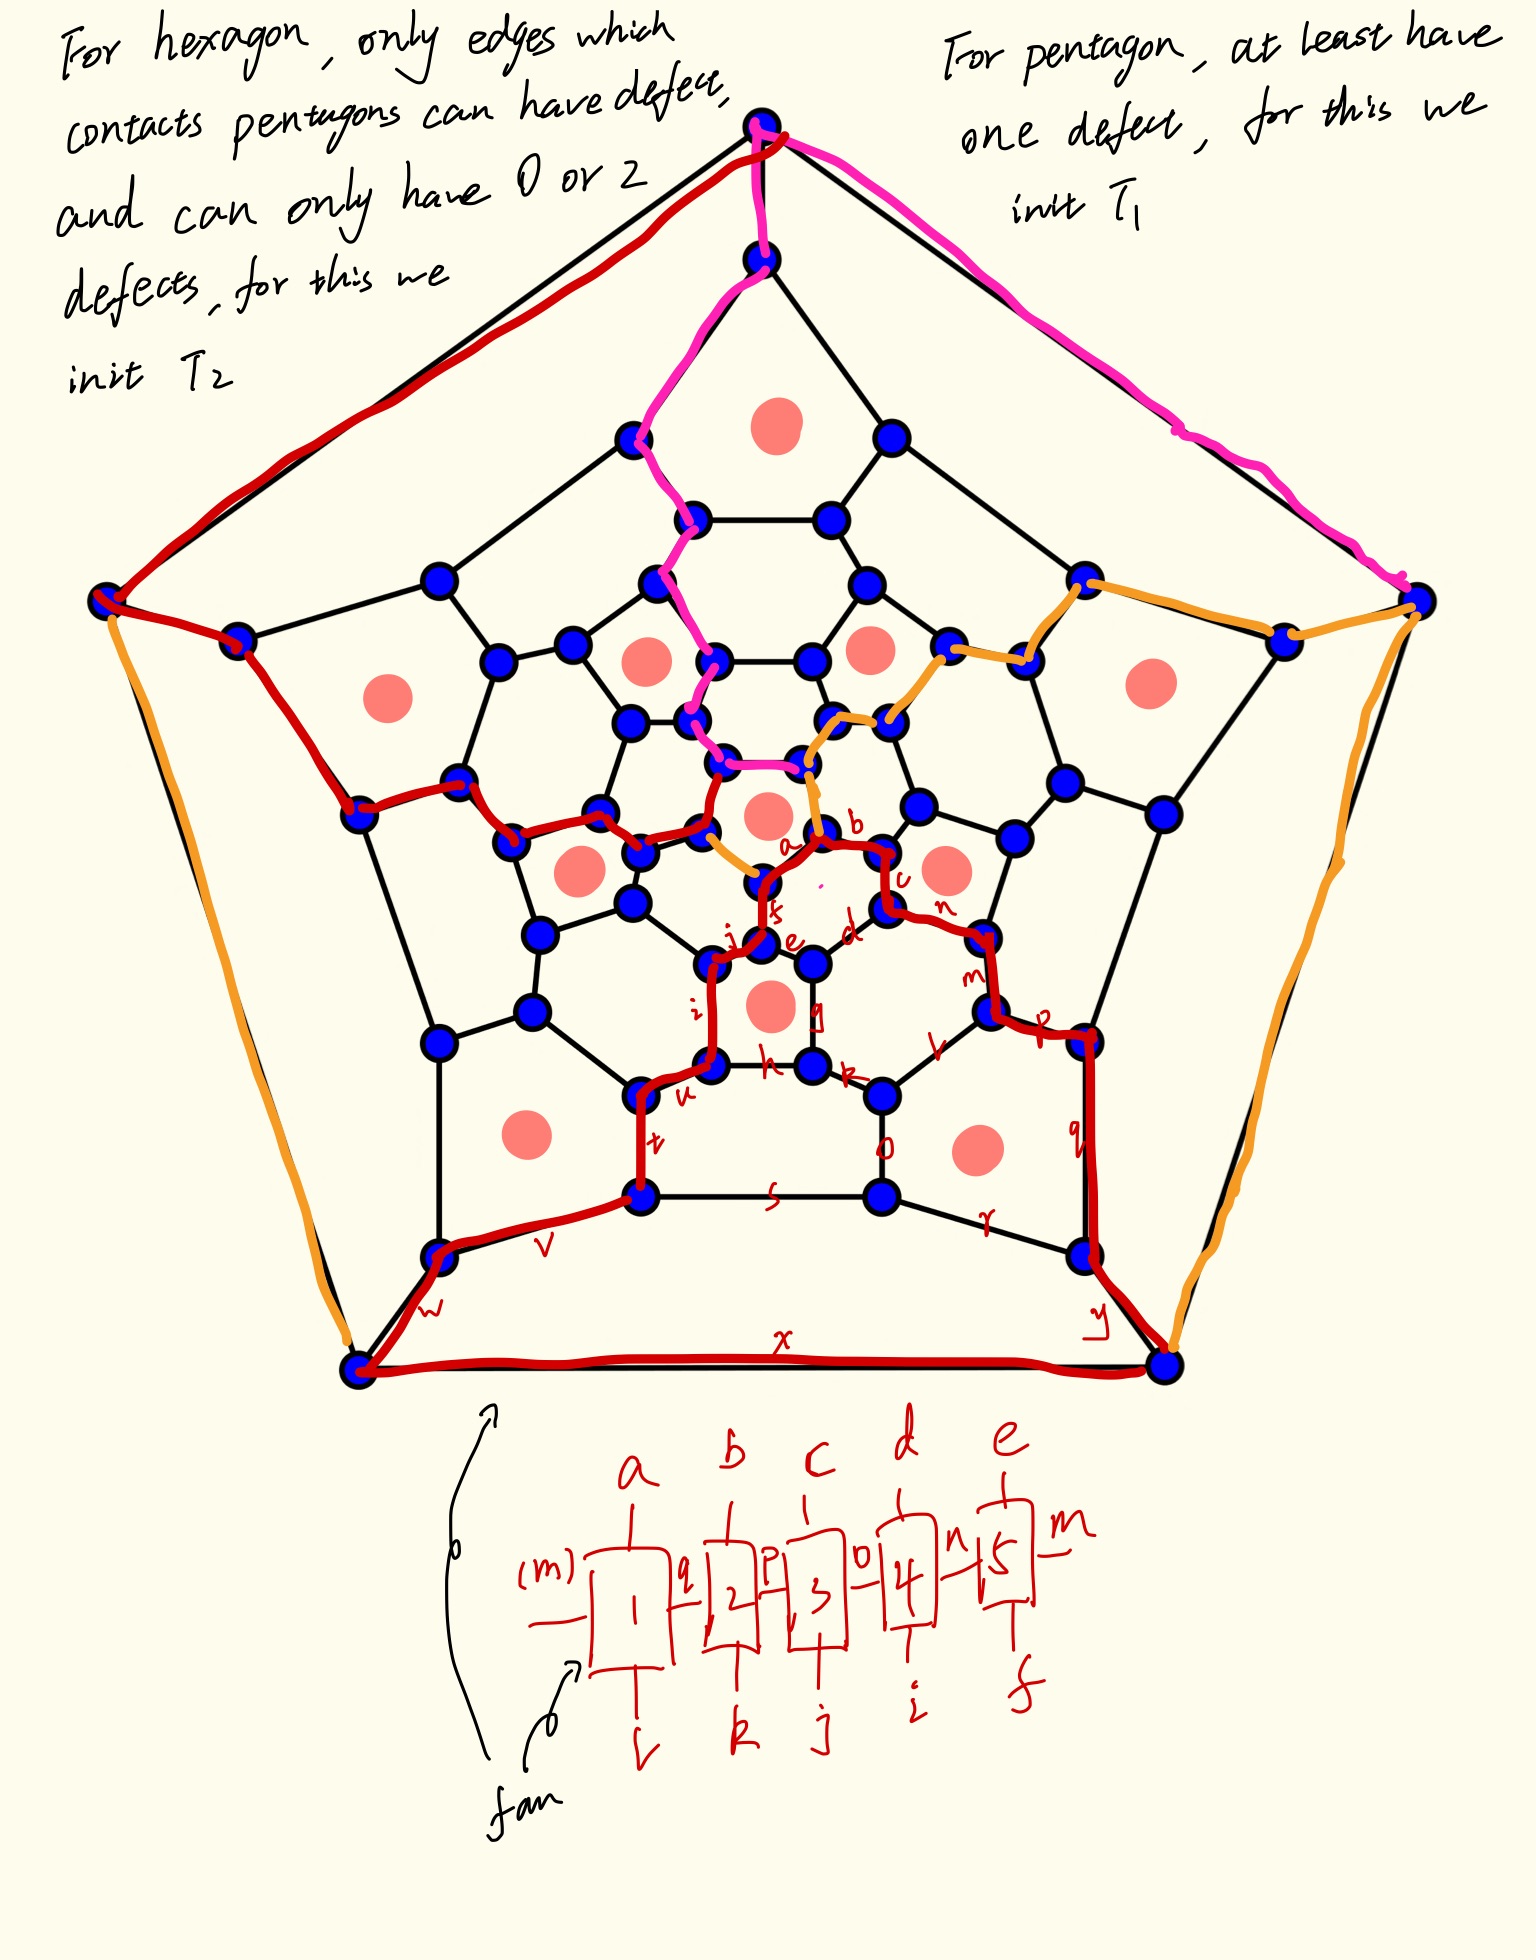 For hexagon, only edges which
contacts pentagons can have defect,
and can only have 0 or 2
defects, for this we
init T2
For pentagon, at least have
one defect, for this we
init T1
b
a
c
n
d
j
e
m
i
g
p
h
k
l
u
t
o
q
s
r
v
w
y
x
a b c d e
(m) 1 q 2 p 3 o 4 n 5 m
l k j i f
fan